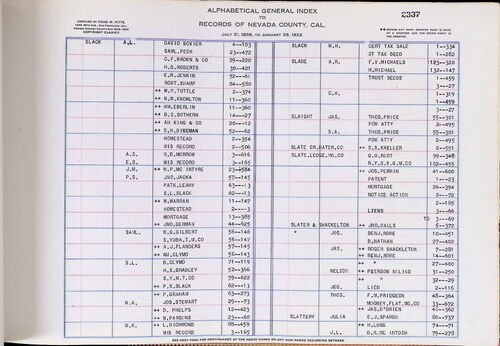 ALPHABETICAL GENERAL INDEX
TO
RECORDS OF NEVADA COUNTY, CAL.
JULY 31, 1856, TO JANUARY 28, 1922
2337
COPYRIGHT CLAIMED
SLACK A.L. DAVID BOVIER 4--103
SAML. PECK 23--472
C.F. BROWN & CO 29--220
H.G. ROBERTS 30--421
E.R. JENKIN 52--61
ROBT. SHARP 84--580
++ W.P. TUTTLE 2--374
++ N.R. KNOWLTON 11--360
++ WM. EBERLIN 11--360
++ B.S. SOTHERN 14--27
++ AH KING & CO 20--12
++ S.H. DIKEMAN 52--62
HOMESTEAD 2--354
MIS RECORD 2--506
A.S. ++ R.B. MORROW 3--616
E.S. MIS RECORD 3--165
J.M. ++ N.P. MC INTYRE 23--584
P.S. JNO. JACKA 57--145
PATK. LEAHY 63--13
S.L. SLACK 62--13
++ W. WARREN 11--147
HOMESTEAD 2--3
MORTGAGE 13--385
++ JNO. GERMAN 44--625
SAML. W.G. GILBERT 56--146
S. YUBA, T.M. CO 56--147
++ A.J. FLANDERS 57--145
++ WM. OLYMO 56--143
S.L. D. OLYMO 51--119
H.S. BRADLEY 52--366
S.Y.M.T. CO 59--622
++ P.S. SLACK 62--13
++ P. GRAHAM 63--273
W.A. JOS. STEWART 29--73
++ D. PHELPS 12--423
++ N. PARDINE 23--60
W.K. ++ L. RICHMOND 88--459
MIS RECORD 3--165
SLACK W.H. CERT TAX SALE 1--334
ST TAX DEED 1--282
SLADE A.R. F.V. MICHAELS 123--320
H. MICHAEL 132--147
TRUST DEEDS 1--459
3--27
C.H. 1--319
1--459
3--27
SLAIGHT JAS. THOS. PRICE 55--301
POW ATTY 2--495
S.A. THOS. PRICE 55--301
POW ATTY 2--495
SLATE CR. WATER, CO ++ S.S. KAELLER 2--551
SLATE, LEDGE, MG. CO G.D. ROOT 99--348
N.Y. G.V. G.M. CO 102--455
++ JOS. PERRIN 41--600
PATENT 1--23
MORTGAGE 26--394
NOTICE ACTION 2--72
2--105
LIENS 3--66
TO 3--69
SLATER & SHACKELTON ++ JNO. WALLS 5--372
" JOS. BENJ. ROWE 10--451
B. NATHAN 27--402
JAS. ++ ROGER SHACKLETON 7--281
++ BENJ. ROWE 14--601
++ " 27--400
NELSON ++ PIERSON NILAND 31--250
++ " 32--29
JOS. LIEN 2--116
THOS. F.W. PRIDGEON 48--364
MOONEY, FLAT, MG. CO 33--672
++ JAS. O'BRIEN 45--362
SLATTERY JULIA E.J. SPARGO 80--737
++ H. LONG 74--71
J.L. D. MC INTOSH 79--278
SEE NEXT PAGE FOR CONTINUANCE OF THE ABOVE NAMES OR ANY NEW NAMES OCCURRING BETWEEN